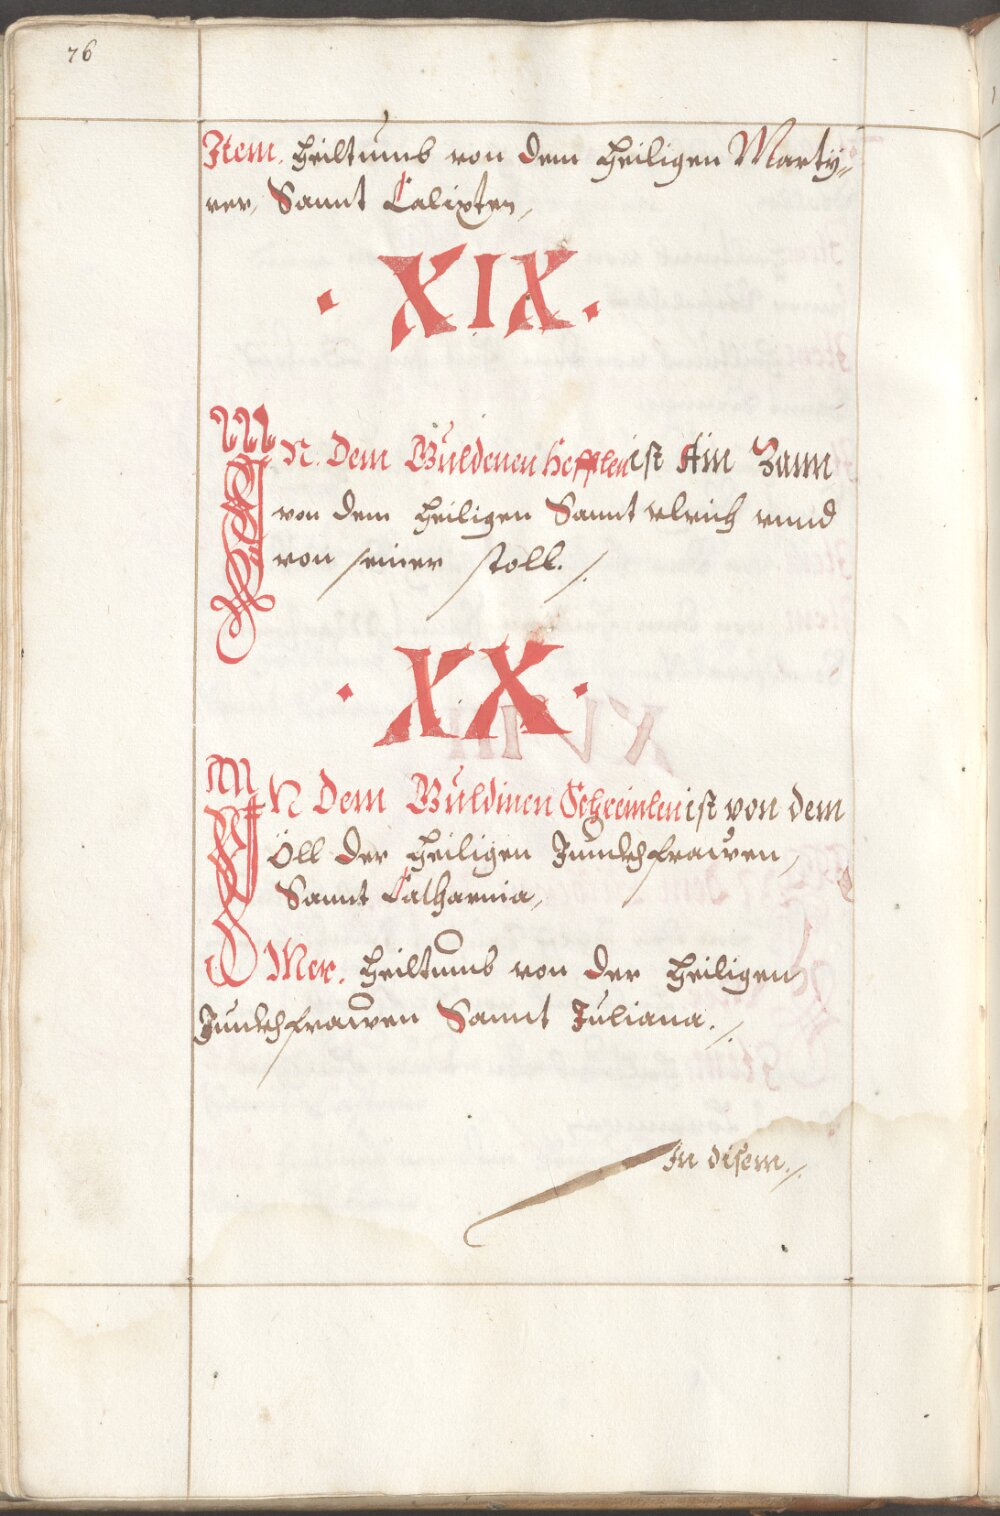 76
Item. Heiltumb von dem Heiligen Marty=
rer, Sannt Calixten,
· XIX ·
IN. Dem Guldenen Hefflen ist Ain Zann
von dem Heiligen Sannt Ulrich vnnd
von seiner stoll./.
· XX ·
IN Dem Guldinen Schreinlen ist von dem
Öll der Heiligen Junckhfrawen,
Sannt Catharnia,
Mer. Heiltumb von der Heiligen
Junckhfrawen Sannt Juliana./.
In disem./.